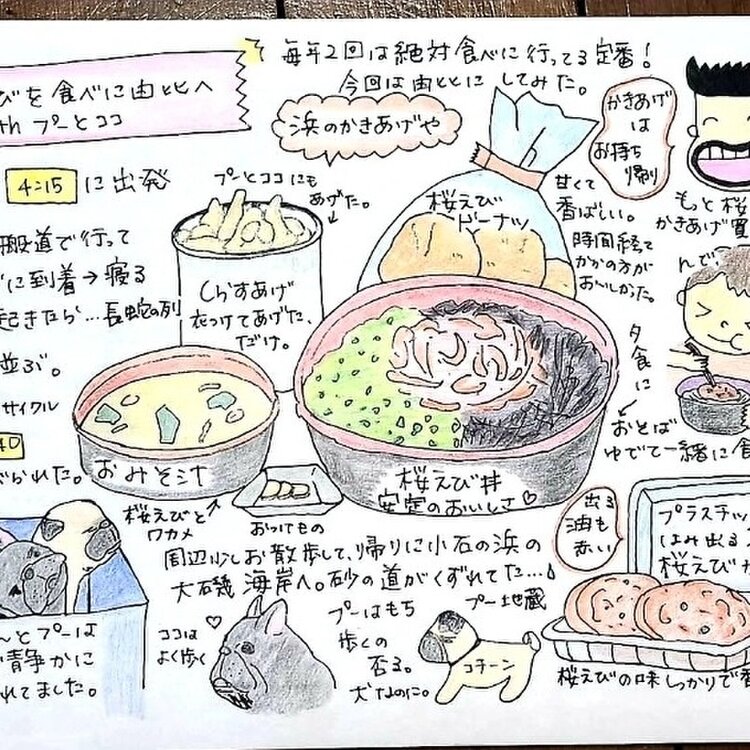 びを食べに由比へ
th プーとココ
毎年2回は絶対食べに行ってる定番!
今回は由比にしてみた。
浜のかきあげや
かきあげ
は
お持ち
帰り
4:15 に出発
プーとココにも
あげた。
般道で行って
に到着→寝る
起きたら…長蛇の列
並ぶ。
サイクル
40
られた。
しらすあげ
衣つけてあげた、
だけ。
桜えび
ドーナツ
甘くて
香ばしい。
時間経て
からの方が
おいしかった。
もっと桜
かきあげ買
んで、
夕食に
おそば
ゆでて一緒に食
おみそ汁
桜えびと
ワカメ
おつけもの
桜えび丼
安定のおいしさ♡
出る
油も
赤い
プラスチッ
はみ出る
桜えびか
周辺少しお散歩して、帰りに小石の浜の
大磯海岸へ。砂の道がくずれてた…
んとプーは
静かに
れてました。
ココは
よく歩く
プーはもち
歩くの
否る。
犬なのに。
プー地蔵
コチーン
桜えびの味しっかりで香